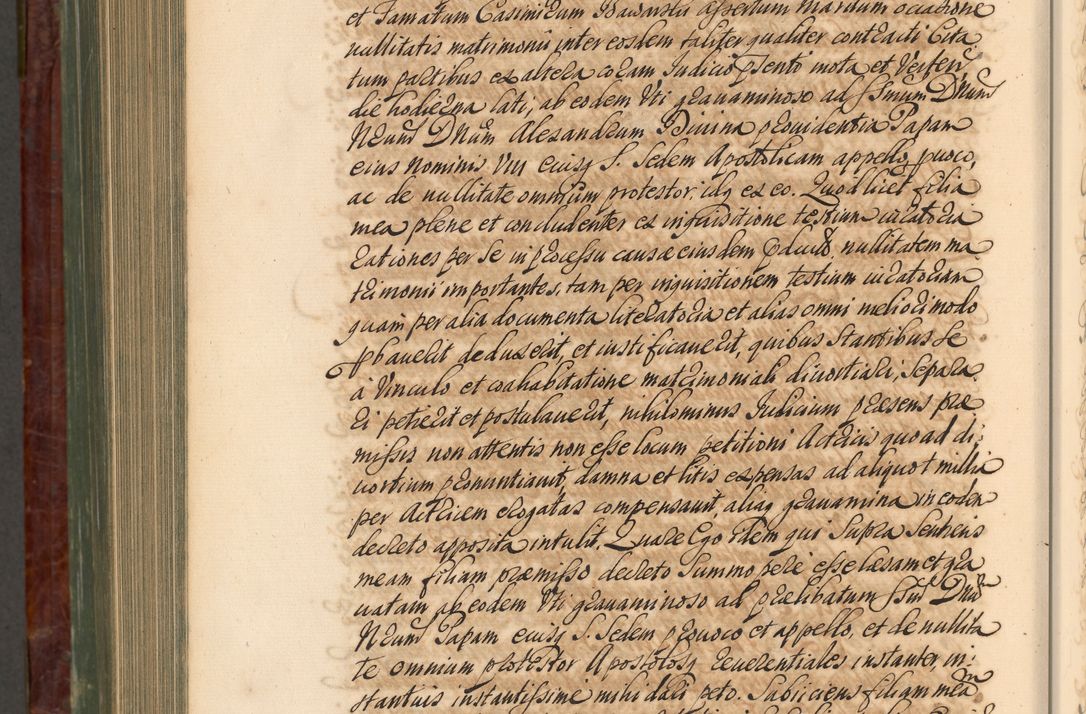 et Famatum Casimirum assertum Maritum occasione
nullitatis matrimonii inter eosdem taliter qualiter contracti Cita
tum partibus ex altera coram Judicio pnti mota et Verten
die hodierna lati, ab eodem Vti gravaminoso ad SSmum Dnum
Nrum Dnum Alexandrum Divina providentia Papam
eius Nominis VII eiusq S. Sedem Apostolicam appello, pvoco,
ac de nullitate omnium protestor, idq ex eo. Quod licet filia
mea plene et concludenter ex inquisitione testium iuratoria
rationes per se in processu causæ eiusdem pduct, nullitatem ma
trimonii importantes, tam per inquisitionem testium iuratoriam
quam per alia documenta literatoria et alias omni meliori modo
pbaverit deduxerit, et iustificaverit, quibus stantibus se
à Vinculo et cohabitatione matrimoniali divortiari, separa
ri petierit et postulaverit, nihilominus Judicium præsens præ
missis non attentis non esse locum petitioni Actricis quoad di
vortium pronuntiavit, damna et litis expensas ad aliquot millia
per Actricem erogatas compensavit, aliaq gravamina in eodem
decreto apposita intulit. Quare Ego idem qui supra sentiens
meam filiam præmisso decreto summopere esse læsam et gra
vatam ab eodem Vti gravaminoso ad prælibatum SSm Dnum
Nrum Papam eiusq S. Sedem provoco et appello, et de nullita
te omnium protestor Apostolosq reverentiales instanter, in
stantius instantissime mihi dari peto. Subiiciens filiam meam